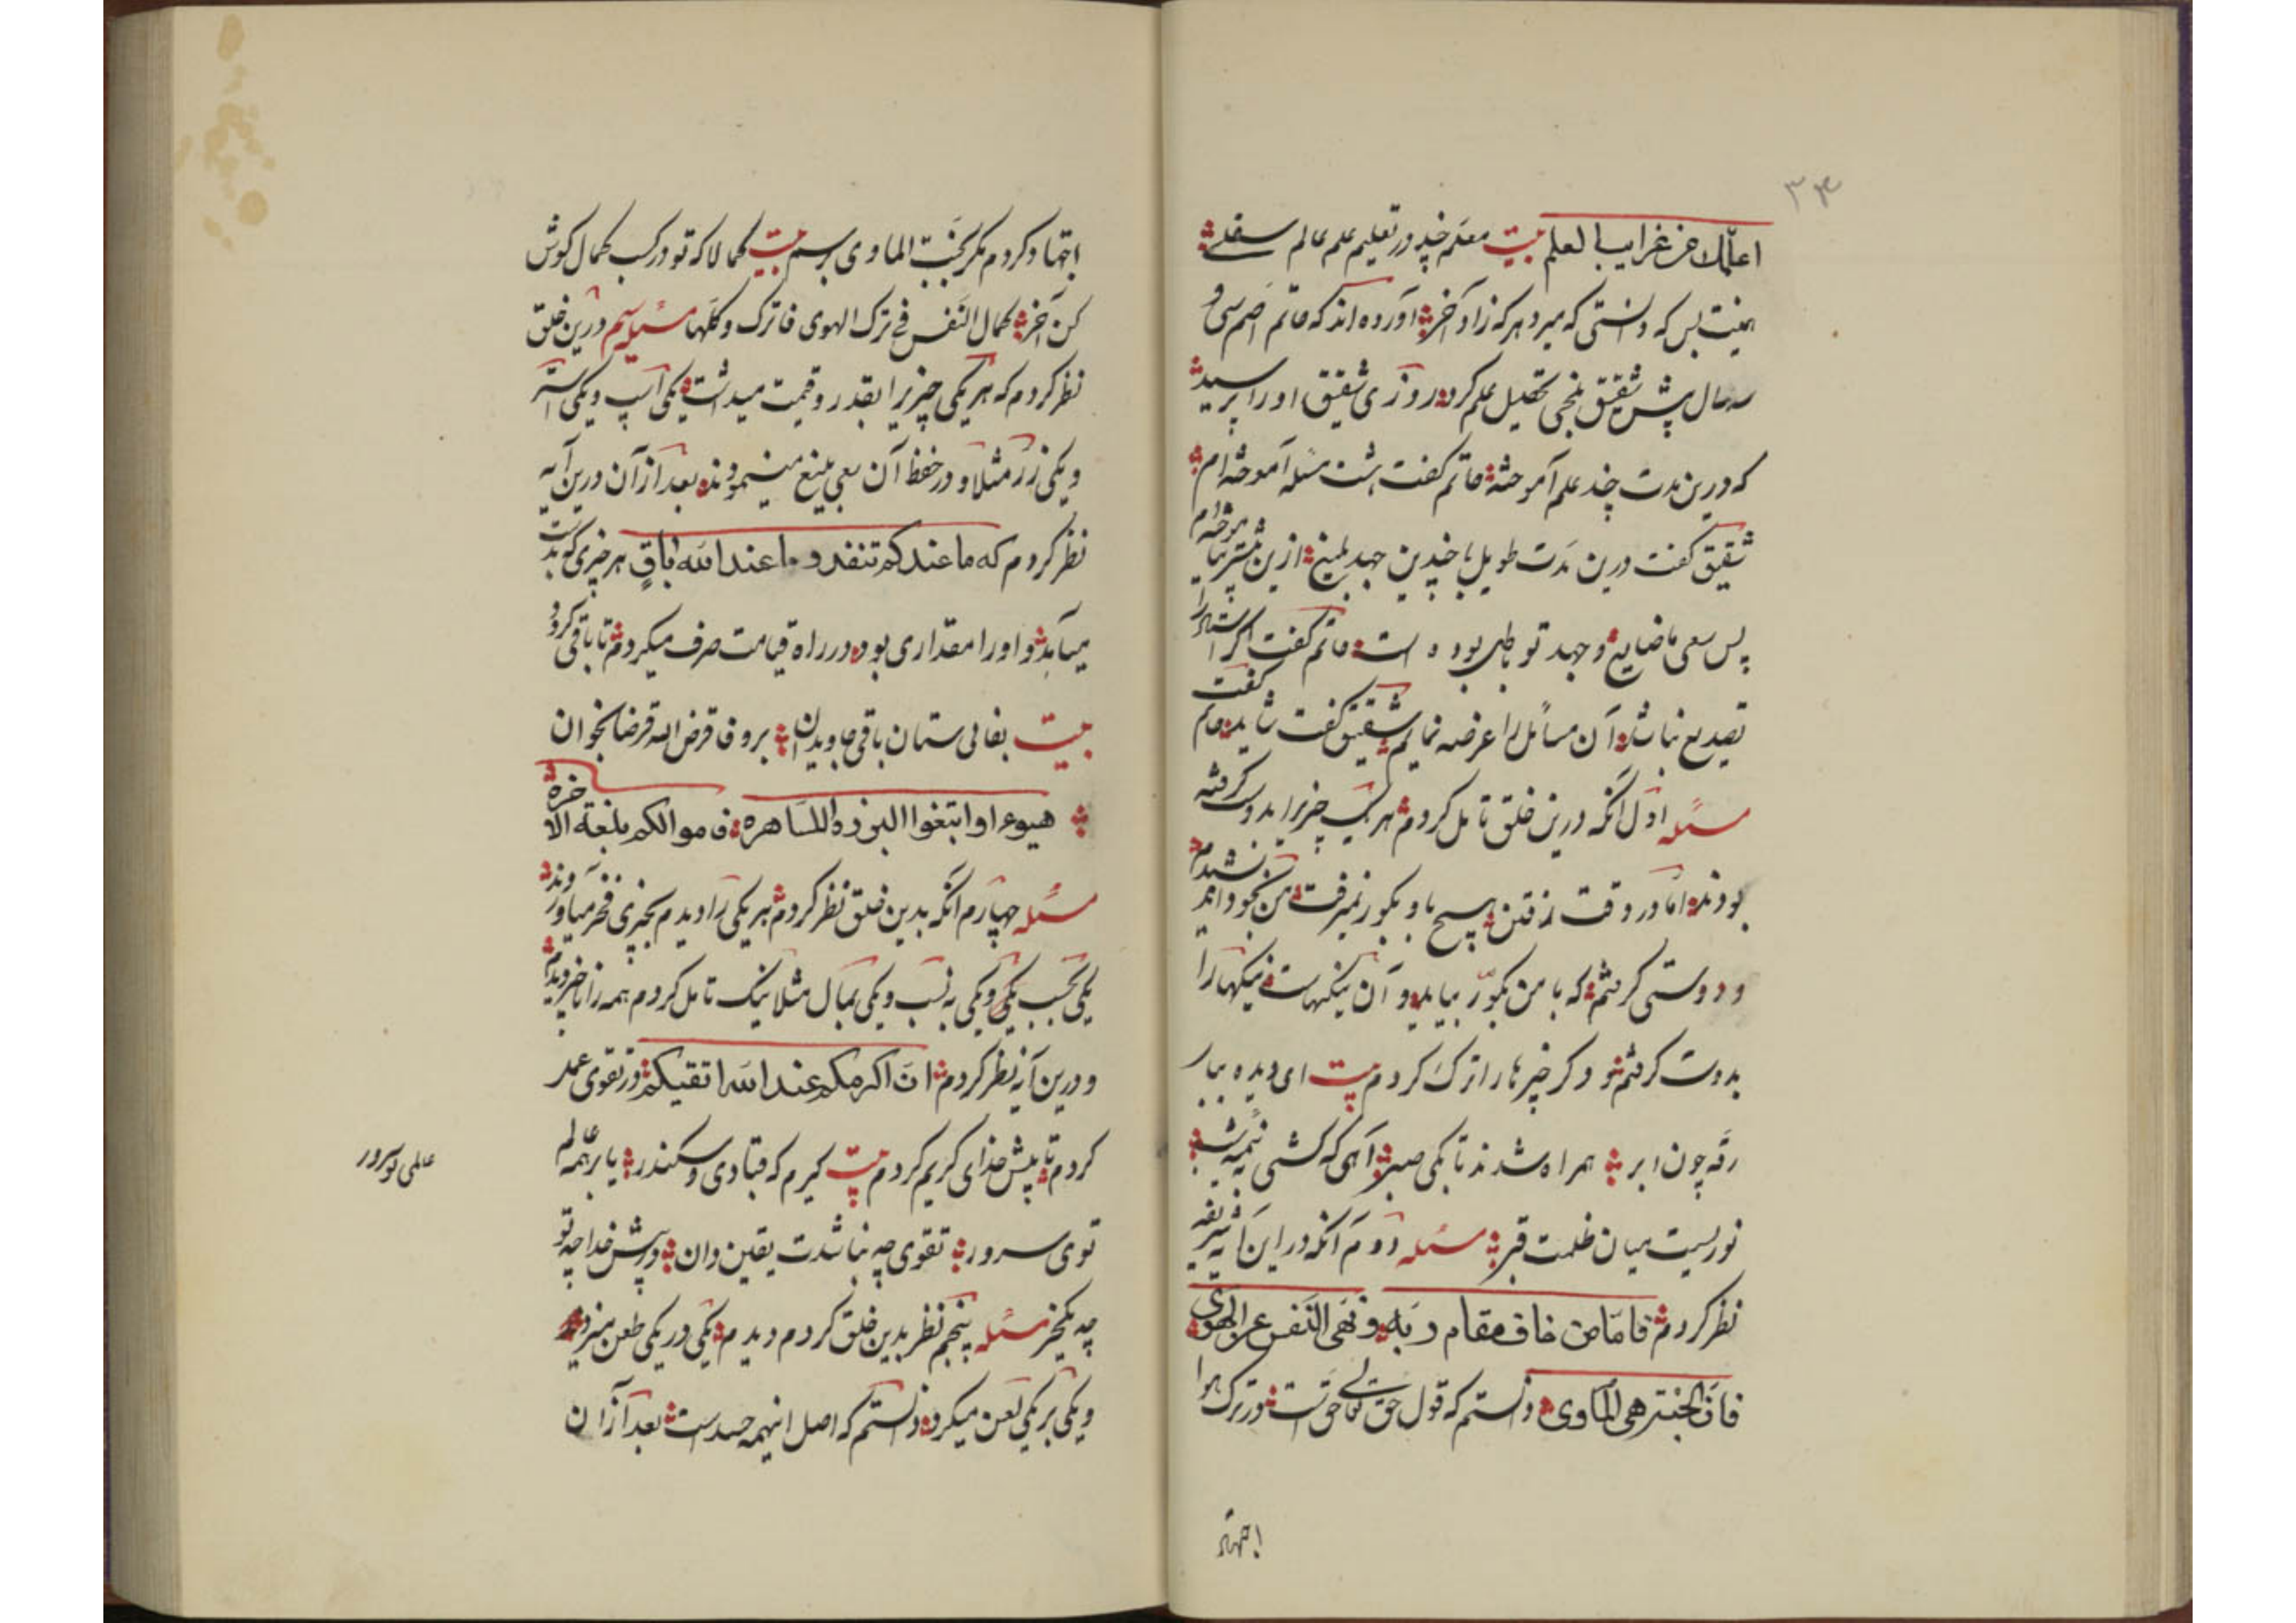 ۳۴
اعلمك من غرایب العلم بیت معلم چند در تعلیم علم عالم سفلے
همینت بس که دانستی که میرد هر که زاد آخر آورده اند که حاتم اصم سی و
سه سال پیش شقیق بلخی تحصیل علم کرد روزی شقیق او را پرسید
که درین مدت چند علم آموخته حاتم گفت هشت مسئله آموخته‌ام
شقیق گفت درین مدت طویل با چندین جهد بلیغ ازین بیشتر نیاموخته‌ام
پس سعی ما ضایع و جهد تو باطل بوده است حاتم گفت اگر استاد را
تصدیع نباشد آن مسائل را عرضه نمایم شقیق گفت شاید حاتم گفت
مسئله اول آنکه درین خلق تامل کردم هر یک چیزیرا بدوست گرفته
بودند اما در وقت رفتن هیچ با او بگور نمیرفت من بخود اندیشیدم
و دوستی گرفتم که با من بگور بیاید و آن نیکیهاست نیکیها را
بدوست گرفتم و دگر چیزها را ترک کردم بیت ای دیده ببار
رقه چون ابر همراه شدند تا بکی صبر آهی که کشی نیمه شب
نوریست میان ظلمت قبر مسئله دوم آنکه در این آیه شریفه
نظر کردم فاما من خاف مقام ربه و نهی النفس عن الهوی
فان الجنة هی الماوی دانستم که قول حق تعالی حق است در ترک هوا
اجتهاد
اجتهاد کردم مگر بجنت الماوی برسم بیت کمالا که تو در کسب کمال کوش
کن آخر کمال النفس فی ترک الهوی فاترک و کلها مسئله سیم درین خلق
نظر کردم که هر یکی چیزیرا بقدر و قیمت میداشت یکی اسپ و یکی استر
و یکی زر مثلا و در حفظ آن سعی بلیغ مینمودند بعد از آن درین آیه
نظر کردم که ما عندکم تنفد و ما عند الله باق هر چیزی که بدست
میآمد و او را مقداری بود در راه قیامت صرف میکردم تا باقی گردد
بیت بفانی ستان باقی جاویدان برو فاقرض الله قرضا بخوان
هیوعا وابتغوا البر ذا الساهره فاموالکم بلغة الاخره
مسئله چهارم آنکه بدین خلق نظر کردم هر یکی را دیدم بچیزی فخر میآورند
یکی بحسب یکی و یکی به نسب و یکی بمال مثلا نیک تامل کردم همه را ناچیز دیدم
و درین آیه نظر کردم ان اکرمکم عند الله اتقیکم در تقوی عمل
کردم تا پیش خدای کریم گردم بیت گیرم که قبادی و سکندر یا بر همه عالم
توی سرور تقوی چه نباشدت یقین دان در پیش خدا چه تو
چه یک خر مسئله پنجم نظر بدین خلق کردم دیدم یکی در یکی طعن میزدند
و یکی بر یکی لعن میکرد دانستم که اصل اینهمه حسد است بعد از آن
عالمی تو سرور